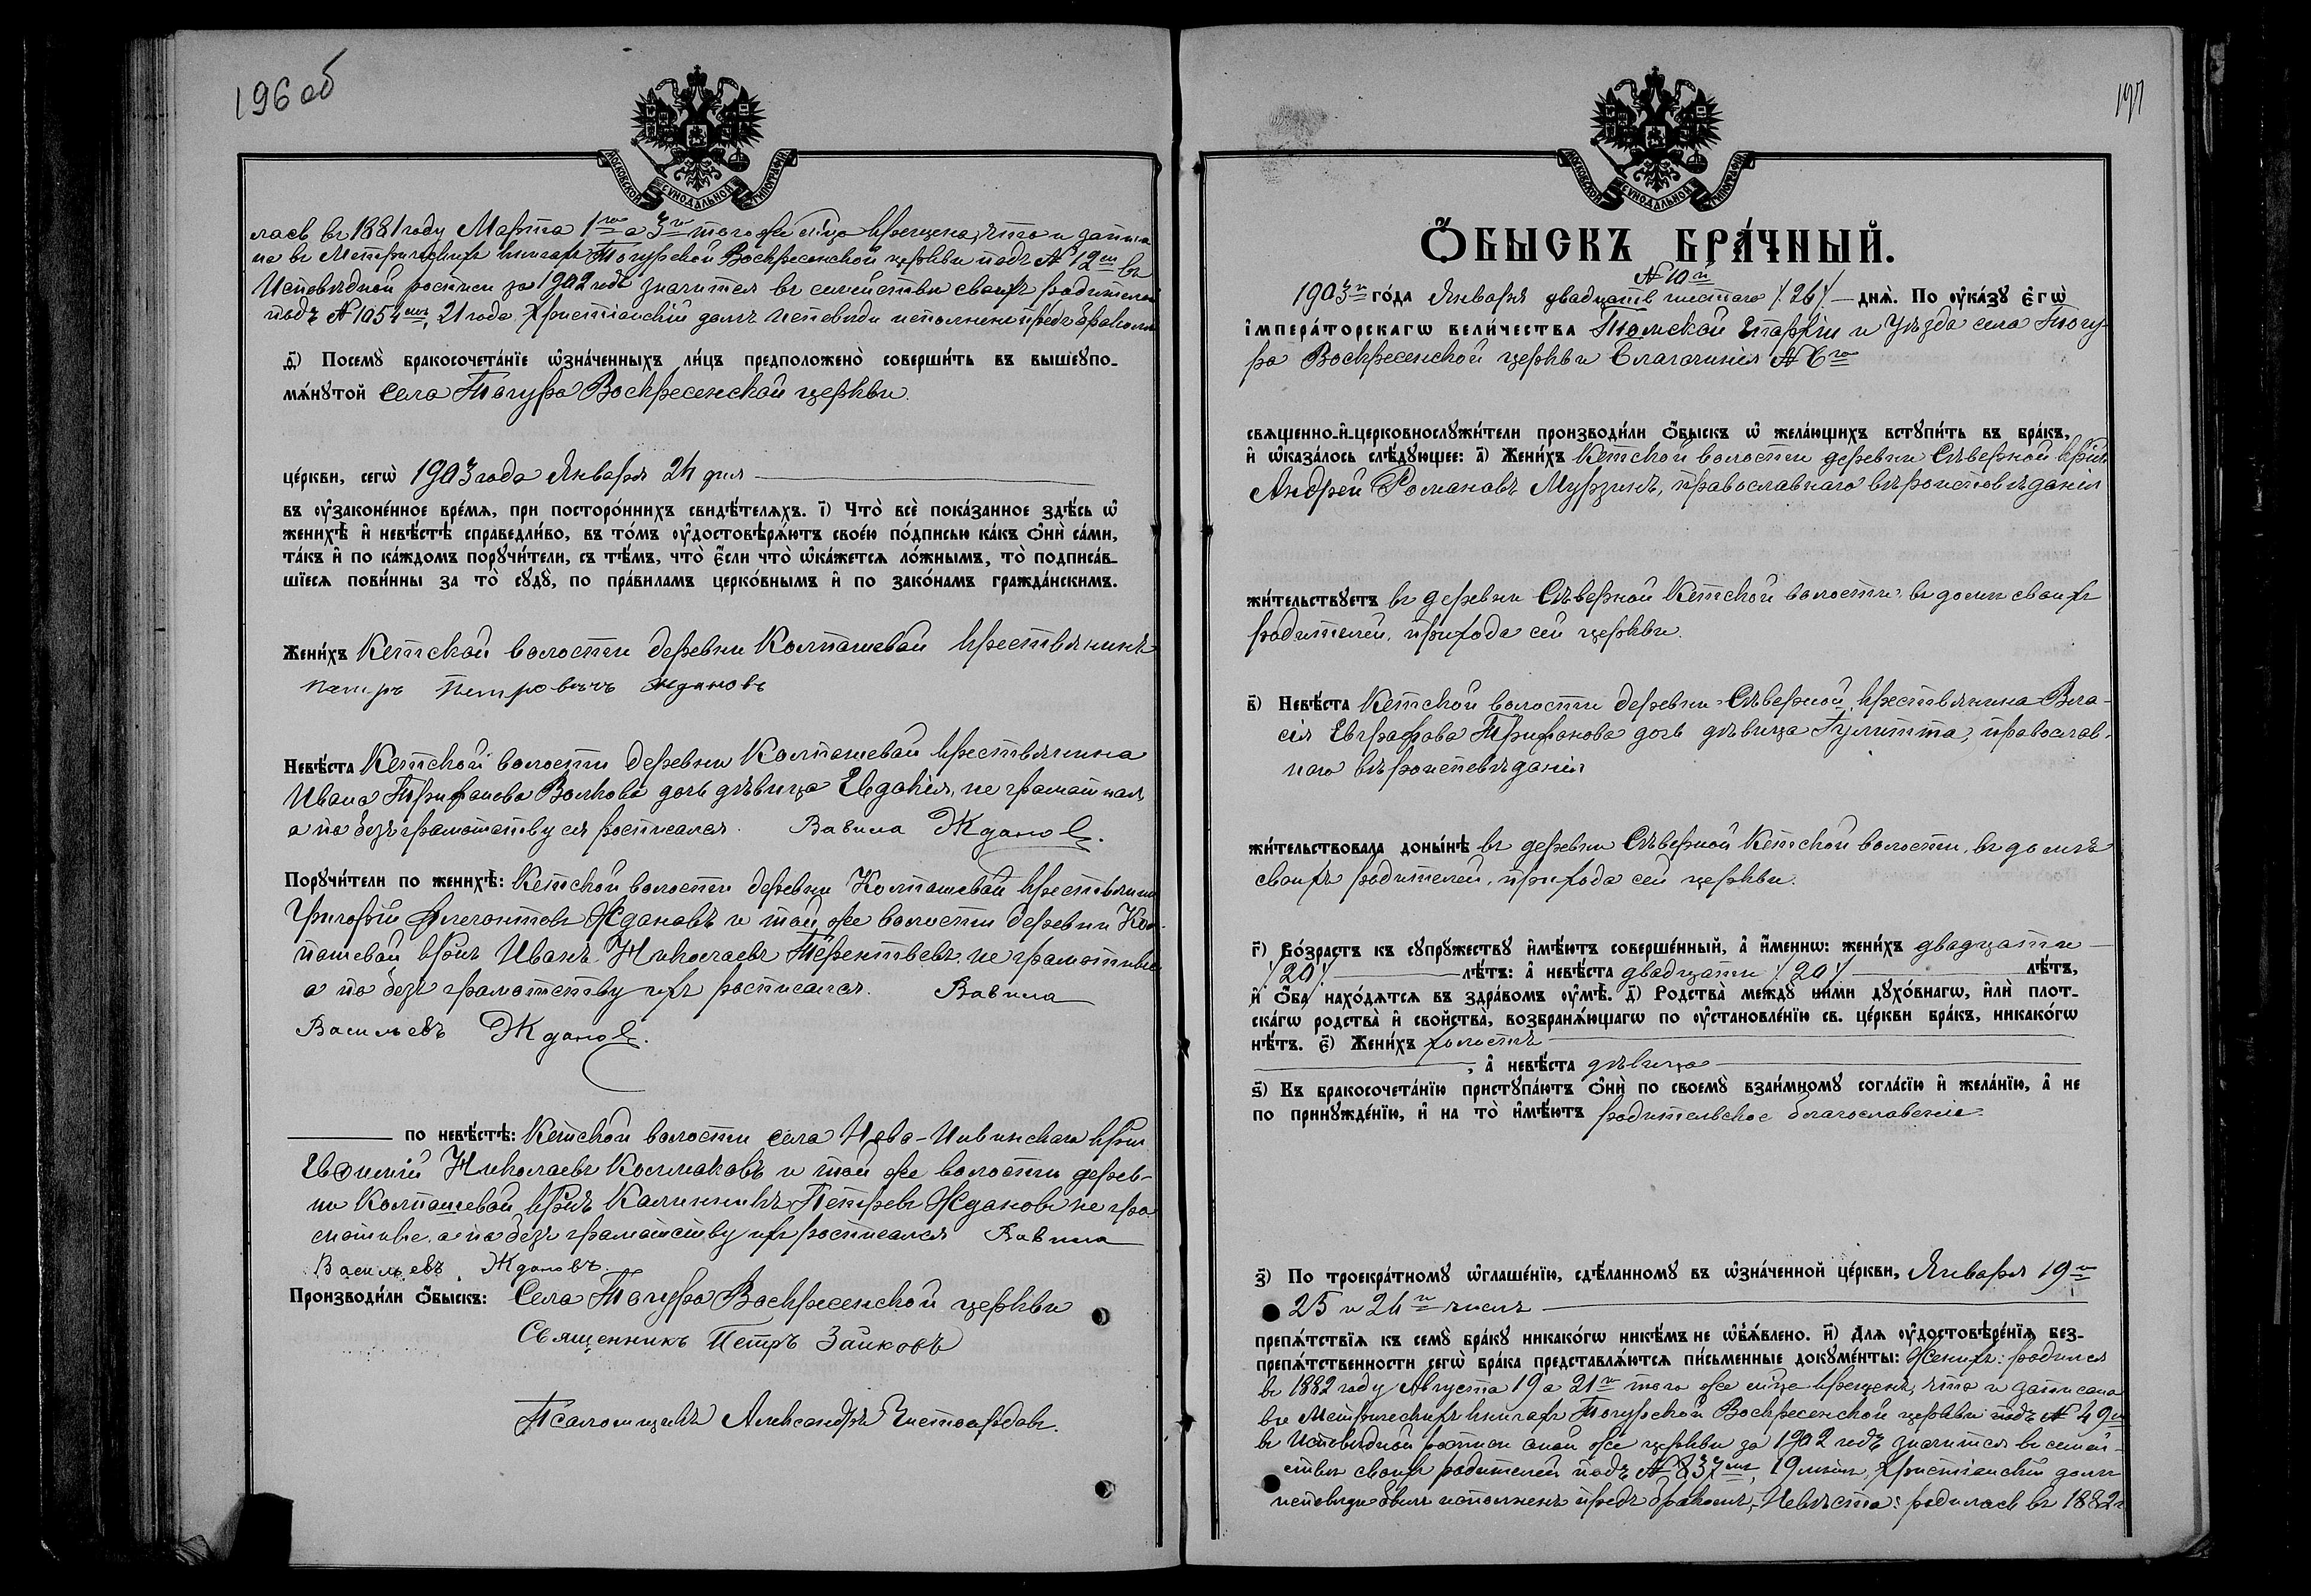 196 об
МОСКОВСКОЙ СѴНОДАЛЬНОЙ ТИПОГРАФІИ
лась въ 1881 году Марта 1го а 3го того же м-ца крещена, что и записа
но въ Метрическихъ книгахъ Тогурской Воскресенской церкви подъ № 12мъ въ
Исповѣдной росписи за 1902 годъ значится въ семействѣ своихъ родителей
подъ № 1054мъ, 21 года, Христіанскій долгъ исповѣди исполненъ предъ бракомъ
ѳ҃) Посемꙋ̀ бракосочета́нїе ѡ҆зна́ченныхъ ли́цъ предположено̀ соверши́ть въ вышеупо-
мѧ́нꙋтой села Тогура Воскресенской церкви.
це́ркви, сегѡ̀ 1903 года Января 24 дня
въ ᲂу҆законе́нное вре́мѧ, при посторо́ннихъ свидѣ́телѧхъ. і҃) Что̀ всѐ пока́занное здѣ́сь ѡ҆
женихѣ̀ и҆ невѣ́стѣ справедли́во, въ то́мъ ᲂу҆достовѣрѧ́ютъ свое́ю по́дписью ка́къ ѻ҆нѝ са́ми,
та́къ и҆ по ка́ждомъ порꙋчи́тели, съ тѣ́мъ, что̀ є҆́сли что̀ ѡ҆ка́жетсѧ ло́жнымъ, то̀ подписа́в-
шїесѧ пови́нны за то̀ сꙋдꙋ̀, по пра́виламъ церко́внымъ и҆ по зако́намъ гражда́нскимъ.
Жени́хъ Кетской волости деревни Колпашевой крестьянинъ
Петръ Петровичъ Ждановъ
Невѣ́ста Кетской волости деревни Колпашевой крестьянина
Ивана Трифанова Волкова дочь дѣвица Евдокія, не грамотная,
а по безъграмотству ея росписался. Вавила Ждановъ.
Порꙋчи́тели по женихѣ̀: Кетской волости деревни Колпашевой крестьянинъ
Григорій Флегонтовъ Ждановъ и той же волости деревни Кол-
пашевой кр-нъ Иванъ Николаевъ Терентьевъ не грамотные
а по безъ грамотству ихъ росписался. Вавила
Васильевъ Ждановъ.
по невѣ́стѣ: Кетской волости села Ново-Ильинскаго кр-нъ
Евѳимій Николаевъ Колмаковъ и той же волости дерев-
ни Колпашевой кр-нъ Калинникъ Петровъ Ждановъ не гра
мотные, а по безъ грамотству ихъ росписался Вавила
Васильевъ Ждановъ.
Производи́ли ѻ҆́быскъ: Села Тогура Воскресенской церкви
Священникъ Петръ Зайковъ
Псаломщикъ Александръ Чистосердовъ.
197
МОСКОВСКОЙ СѴНОДАЛЬНОЙ ТИПОГРАФІИ
Ѻ҆́БЫСКЪ БРА́ЧНЫЙ.
№ 10й
1903го го́да Января двадцать шестаго /26/ днѧ̀. По ᲂу҆ка́зꙋ є҆гѡ̀
і҆мпера́торскагѡ вели́чества Томской Епархіи и Уѣзда села Тогу-
ра Воскресенской церкви Благочинія № 6го
свѧщенно-и҆-церковнослꙋжи́тели производи́ли ѻ҆́быскъ ѡ҆ жела́ющихъ встꙋпи́ть въ бра́къ,
и҆ ѡ҆каза́лось слѣ́дꙋющее: а҃) Жени́хъ Кетской волости деревни Сѣверной кр-нъ
Андрей Романовъ Мурзинъ, православнаго вѣроисповѣданія
жи́тельствꙋетъ въ деревни Сѣверной Кетской волости, въ домѣ своихъ
родителей, прихода сей церкви.
в҃) Невѣ́ста Кетской волости деревни Сѣверной, крестьянина Вла-
сія Евграфова Трифонова дочь дѣвица Гулитта, православ-
наго вѣроисповѣданія
жи́тельствовала доны́нѣ въ деревни Сѣверной Кетской волости, въ домѣ
своихъ родителей, прихода сей церкви.
г҃) Во́зрастъ къ сꙋпрꙋжествꙋ и҆мѣ́ютъ соверше́нный, а҆ и҆́меннѡ: жени́хъ двадцати
/20/ лѣ́тъ: а҆ невѣ́ста двадцати /20/ лѣ́тъ,
и҆ ѻ҆́ба нахо́дѧтсѧ въ здра́вомъ ᲂу҆мѣ̀. д҃) Родства̀ междꙋ̀ ни́ми дꙋхо́внагѡ, и҆лѝ плот-
ска́гѡ родства̀ и҆ сво́йства̀, возбранѧ́ющагѡ по ᲂу҆становле́нїю св. це́ркви бра́къ, никако́гѡ
нѣ́тъ. є҃) Жени́хъ холостъ
, а҆ невѣ́ста дѣвица
ѕ҃) Къ бракосочета́нїю пристꙋпа́ютъ ѻ҆нѝ по своемꙋ̀ взаи́мномꙋ согла́сїю и҆ жела́нїю, а҆ не
по принꙋжде́нїю, и҆ на то̀ и҆мѣ́ютъ родительское благословеніе
з҃) По троекра́тномꙋ ѡ҆глаше́нїю, сдѣ́ланномꙋ въ ѡ҆зна́ченной це́ркви, Января 19го
25 и 26го чиселъ
препѧ́тствїѧ къ семꙋ̀ бра́кꙋ никако́гѡ никѣ́мъ не ѡ҆б̾ѧ́влено. и҃) Для ᲂу҆достовѣре́нїѧ без-
препѧ́тственности сегѡ̀ бра́ка представлѧ́ютсѧ пи́сьменные докꙋме́нты: Женихъ: родился
въ 1882 году Августа 19 а 21го того же м-ца крещенъ, что и записано
въ Метрическихъ книгахъ Тогурской Воскресенской церкви подъ № 49мъ
въ Исповѣдной росписи оной же церкви за 1902 годъ значится въ семей-
ствѣ своихъ родителей подъ № 837мъ, 19 лѣтъ, Христіанскій долгъ
исповѣди былъ исполненъ предъ бракомъ, Невѣста: родилась въ 1882 г